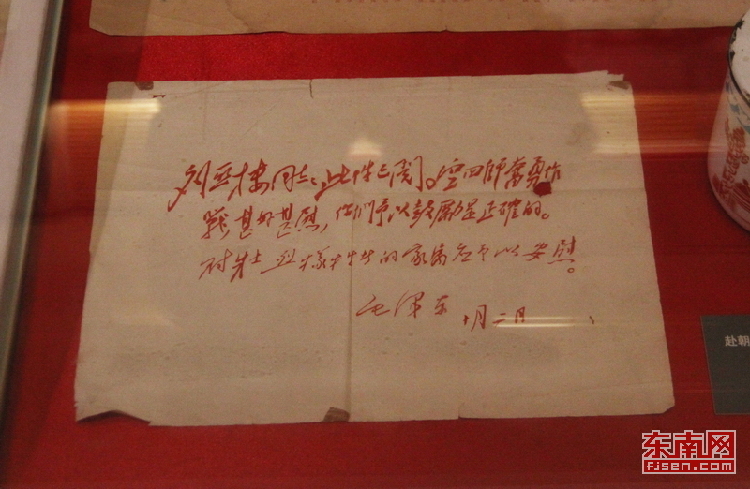 刘亚楼同志:此件已阅。空四師奮勇作
戰甚好甚慰,你們予以鼓勵是正確的。
对壮烈犧牲的家属应予以安慰。
毛泽东 十月二日
赴朝
东南网
fjsen.com